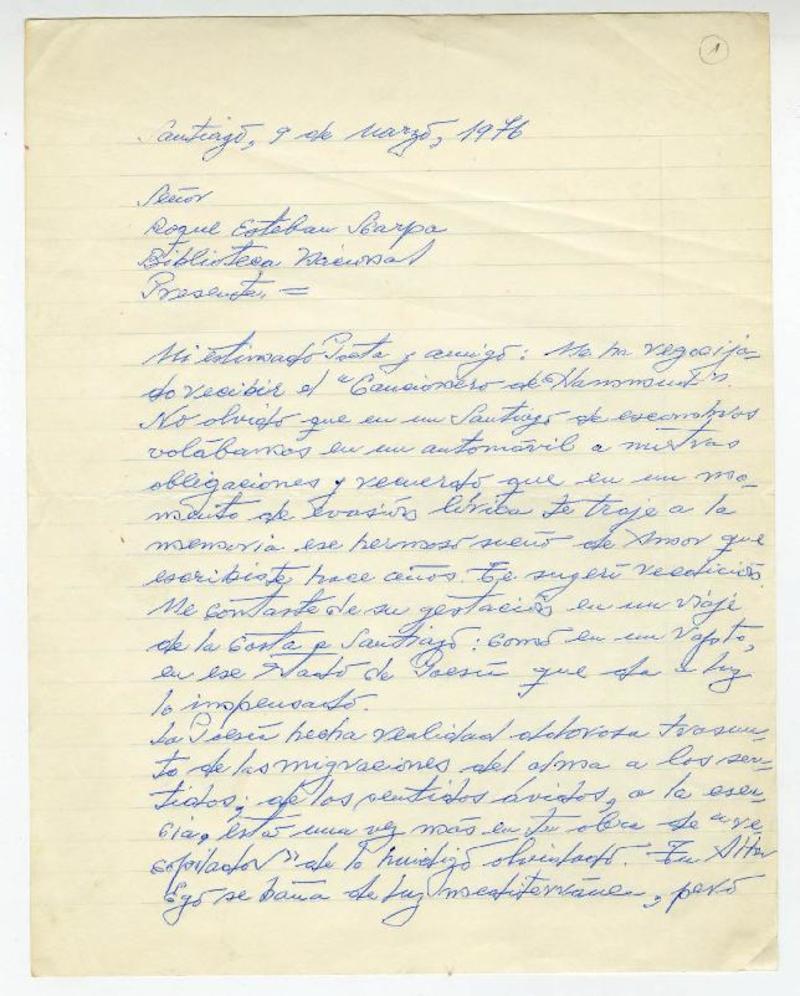 1
Santiago, 9 de Marzo, 1976
Señor
Roque Esteban Scarpa
Biblioteca Nacional
Presente. =
Mi estimado Poeta y amigo: Me ha regocija-
do recibir el "Cancionero de Hammud".
No olvido que en un Santiago de escombros
volábamos en un automóvil a nuestras
obligaciones y recuerdo que en un mo-
mento de evasión lírica te traje a la
memoria ese hermoso sueño de Amor que
escribiste hace años. Te sugerí reedición.
Me contaste de su gestación en un viaje
de la Costa a Santiago: como en un rapto,
en ese estado de Poesía que da a luz
lo impensado.
La Poesía hecha realidad dolorosa trasun-
to de las migraciones del alma a los sen-
tidos; de los sentidos ávidos, a la esen-
cia, está una vez más en tu obra de "re-
copilador" de lo huidizo olvidado. Tu Alter
Ego se baña de luz mediterránea, pero